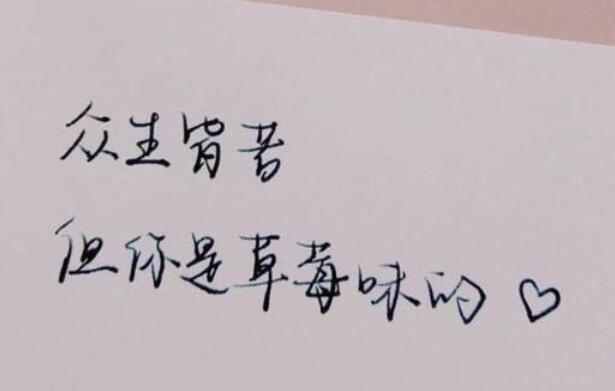 众生皆苦
但你是草莓味的♡